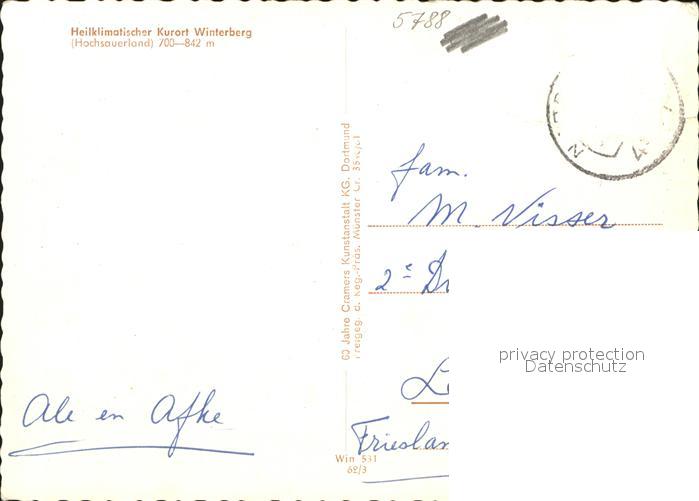 Heilklimatischer Kurort Winterberg
(Hochsauerland) 700—842 m
5788
60 Jahre Cramers Kunstanstalt KG. Dortmund
Freigeg. d. Reg.-Präs. Münster Cr.
fam.
M. Visser
2e
privacy protection
Datenschutz
Ale en Afke
Frieslan
Win 531
62/3